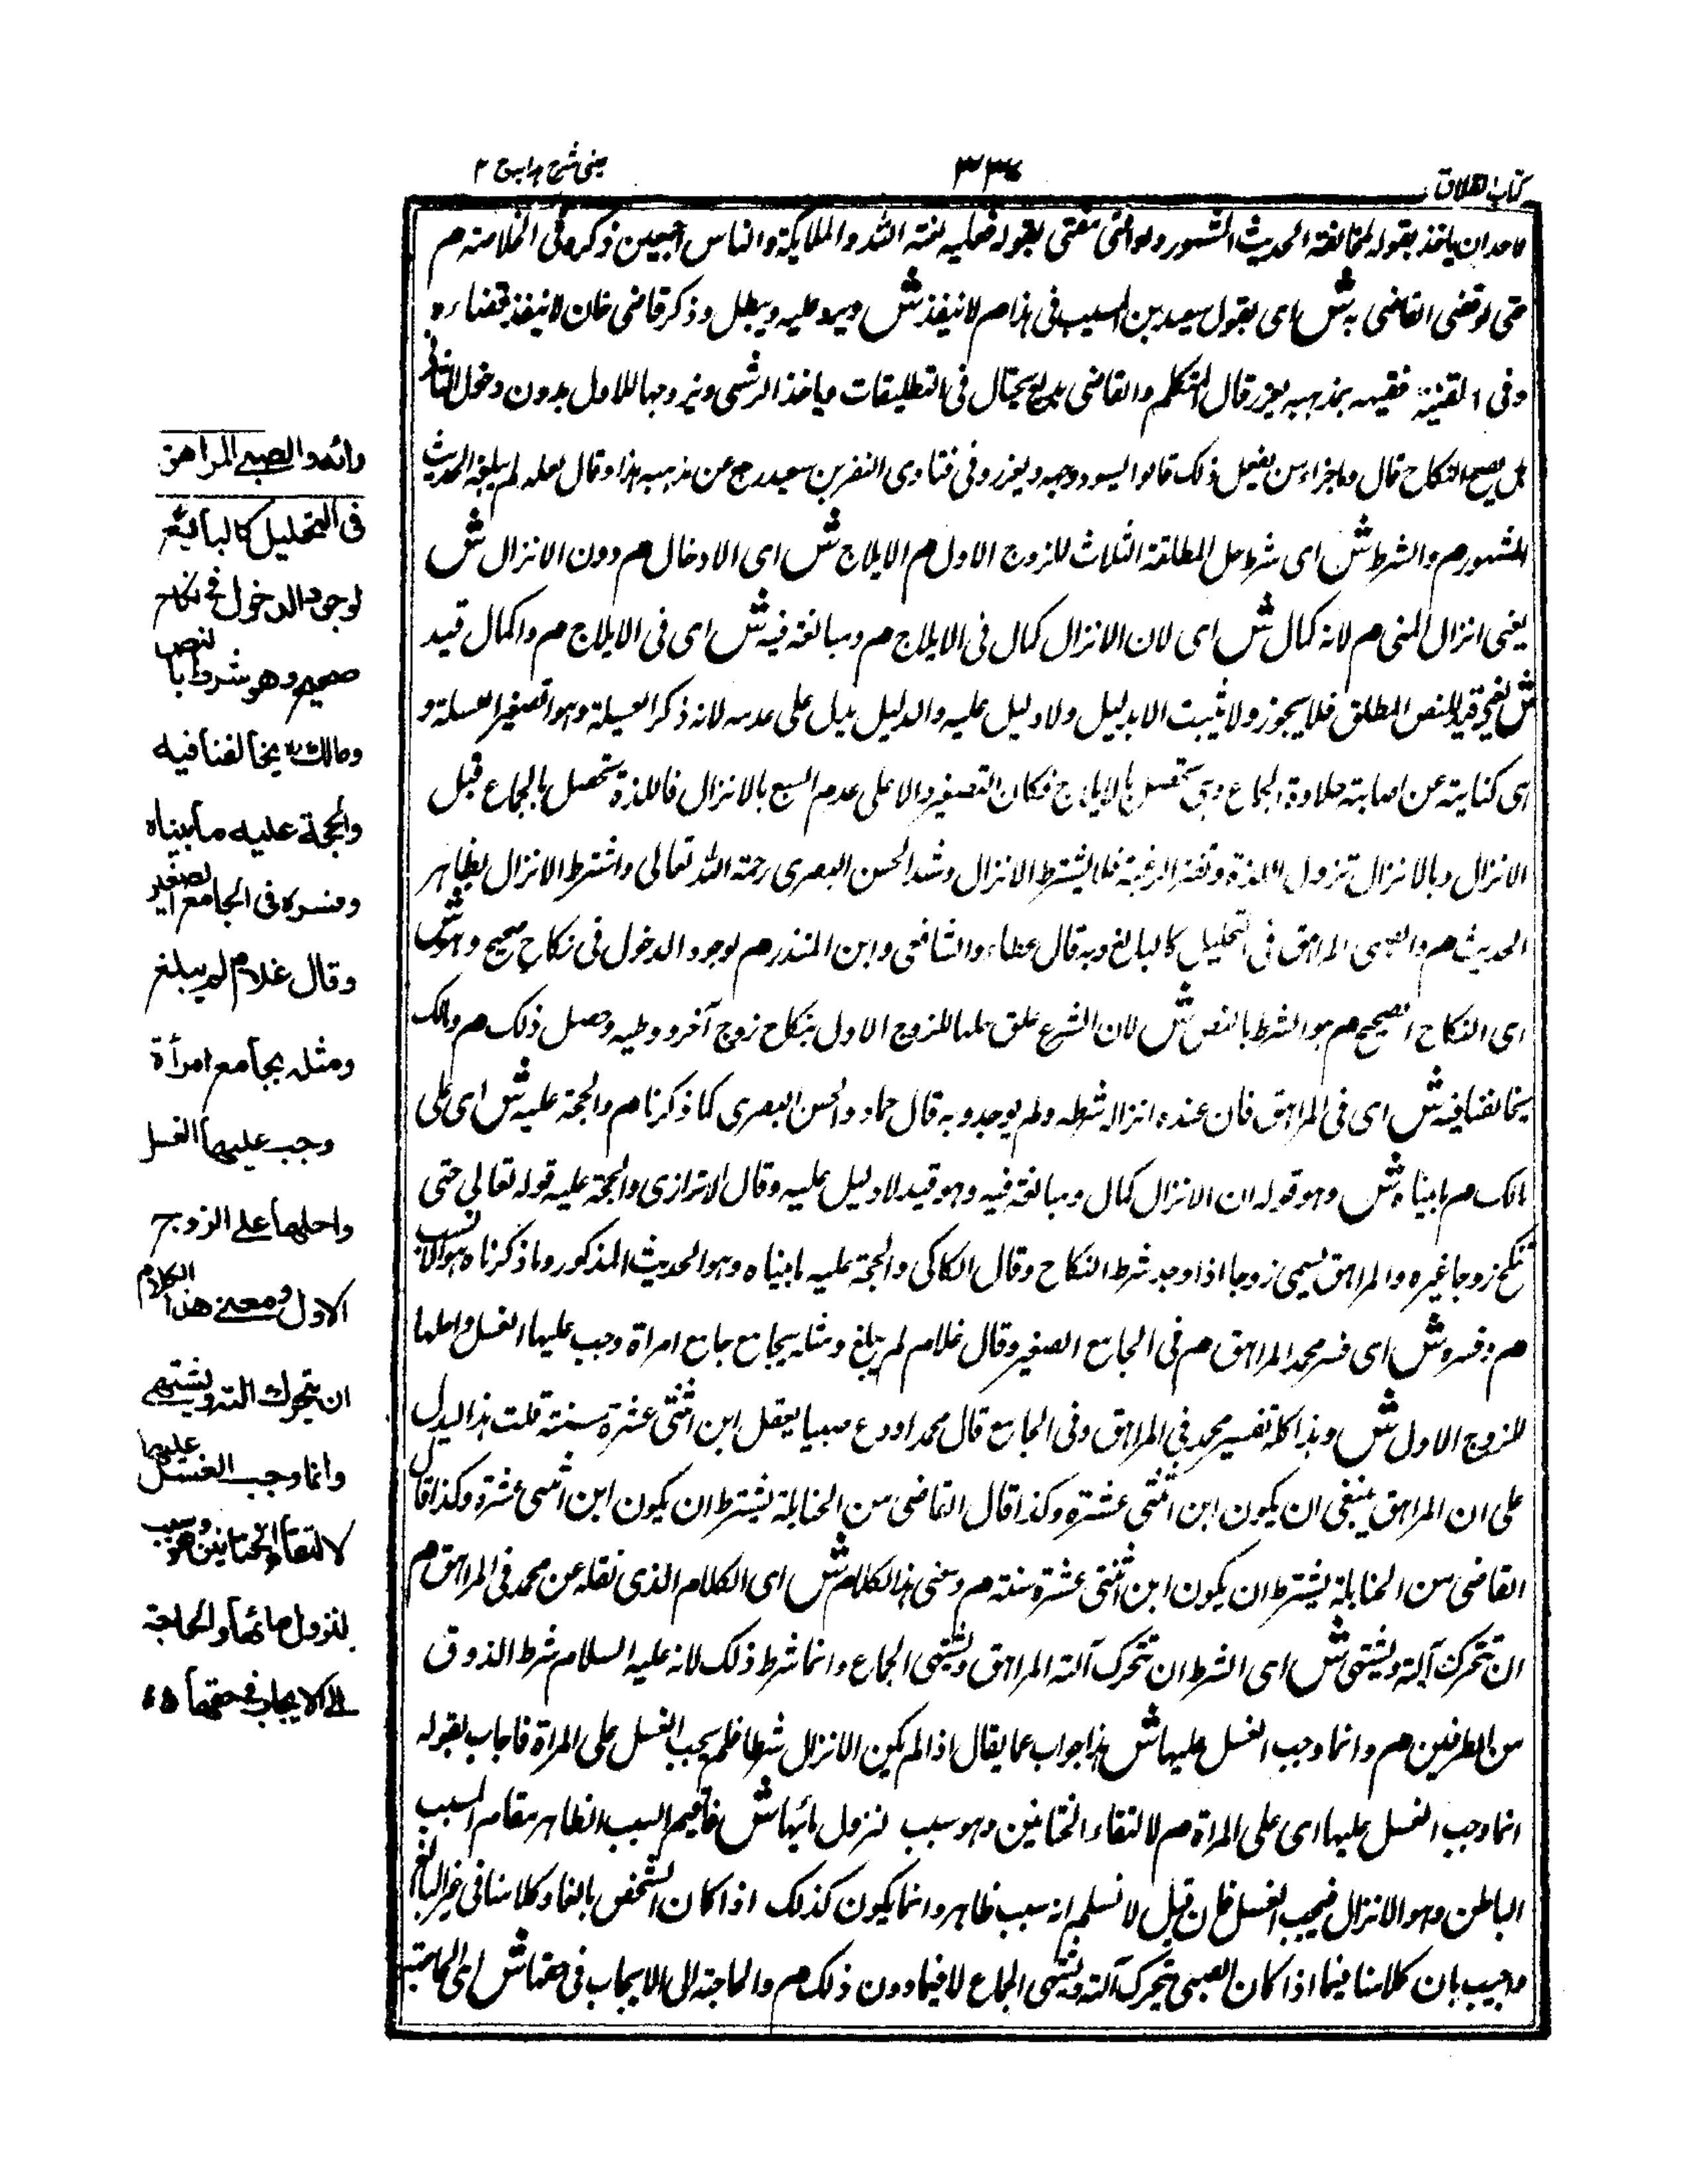 كتاب الطلاق
٣٣٤
عينى شرح هدايه ج ٢
لاحد ان ياخذ بقوله لمخالفة الحديث المشهور ولو افتى مفتى بقوله فعليه لعنة الله والملايكة والناس اجمعين ذكره فى الخلاصة م
حتى لو قضى القاضى به ش اى بقول سعيد بن المسيب فى هذا م لا ينفذ ش ويرد عليه ويبطل وذكر قاضى خان لا ينفذ قضاءه
وفى القنية فقيه بمذهبه يعزر قال المتكلم والقاضى بديع يحتال فى التطليقات وياخذ الرشى ويزوجها للاول بدون دخول الثانى
هل يصح النكاح قال وما جزاء من يفعل ذلك قالوا يسود وجهه ويعزر وفى فتاوى النفر بن سعيد رجع عن مذهبه هذا وقال لعله لم يبلغه الحديث
المشهور م والشرط ش اى شرط حل المطلقة الثلاث للزوج الاول م الايلاج ش اى الادخال م دون الانزال ش
يعنى انزال المنى م لانه كمال ش اى لان الانزال كمال فى الايلاج م ومبالغة فيه ش اى فى الايلاج م والكمال قيد
ش يعنى قيد للنص المطلق فلا يجوز ولا يثبت الا بدليل ولا دليل عليه والدليل يدل على عدمه لانه ذكر العسيلة وهو تصغير العسلة و
هى كناية عن اصابة حلاوة الجماع وهى تحصل بالايلاج فكان التصغير دالا على عدم الشبع بالانزال فاللذة تحصل بالجماع قبل
الانزال وبالانزال تزول اللذة وتفتر الرغبة فلا يشترط الانزال وشذ الحسن البصرى رحمة الله تعالى واشترط الانزال بظاهر
الحديث م والصبى المراهق فى التحليل كالبالغ وبه قال عطاء والشافعى وابن المنذر م لوجود الدخول فى نكاح صحيح وهو ش
اى النكاح الصحيح م هو الشرط بالنص ش لان الشرع علق حلها للزوج الاول بنكاح زوج آخر ووطيه وحصل ذلك م ومالك
يخالفنا فيه ش اى فى المراهق فان عنده انزاله شرط ولم يوجد وبه قال حماد والحسن البصرى كما ذكرنا م والحجة عليه ش اى على
مالك م ما بيناه ش وهو قوله ان الانزال كمال ومبالغة فيه وهو قيد لا دليل عليه وقال الاترازى والحجة عليه قوله تعالى حتى
تنكح زوجا غيره والمراهق يسمى زوجا اذا وجد شرط النكاح وقال الكاكى والحجة عليه ما بيناه وهو الحديث المذكور وما ذكرناه هو الانسب
م وفسره ش اى فسر محمد المراهق م فى الجامع الصغير وقال غلام لم يبلغ ومثله يجامع جامع امراة وجب عليها الغسل واحلها
للزوج الاول ش وهذا كله تفسير محمد فى المراهق وفى الجامع قال محمد اودع صبيا يعقل ابن اثنتى عشرة سنة قلت هذا يدل
على ان المراهق ينبغى ان يكون ابن اثنتى عشرة وكذا قال القاضى من الحنابلة يشترط ان يكون ابن اثنتى عشرة وكذا قال
القاضى من الحنابلة يشترط ان يكون ابن اثنتى عشرة سنة م ومعنى هذا الكلام ش اى الكلام الذى نقله عن محمد فى المراهق م
ان تتحرك آلته ويشتهى ش اى الشرط ان تتحرك آلته المراهق ويشتهى الجماع وانما شرط ذلك لانه عليه السلام شرط الذوق
من الطرفين م وانما وجب الغسل عليها ش هذا جواب عما يقال اذا لم يكن الانزال شرطا فلم يجب الغسل على المراة فاجاب بقوله
انما وجب الغسل عليها اى على المراة م لالتقاء الختانين وهو سبب لنزول مائها ش فاقيم السبب الظاهر مقام المسبب
الباطن وهو الانزال فيجب الغسل فان قيل لا نسلم انه سبب ظاهر وانما يكون كذلك اذا كان الشخص بالغا وكلامنا فى غير البالغ
واجيب بان كلامنا فيما اذا كان الصبى تتحرك آلته ويشتهى الجماع لا فيما دون ذلك م والحاجة الى الايجاب فى حقها ش اى الحاجة
والصبى المراهق
فى التحليل كالبالغ
لوجود الدخول فى نكاح
صحيح وهو شرط بالنص
ومالك يخالفنا فيه
والحجة عليه ما بيناه
وفسره فى الجامع الصغير
وقال غلام لم يبلغ
ومثله يجامع امرأة
وجب عليها الغسل
واحلها على الزوج
الاول ومعنى هذا الكلام
ان يتحرك آلته ويشتهى
وانما وجب الغسل عليها
لالتقاء الختانين وهو سبب
لنزول مائها والحاجة
الى الايجاب فى حقها